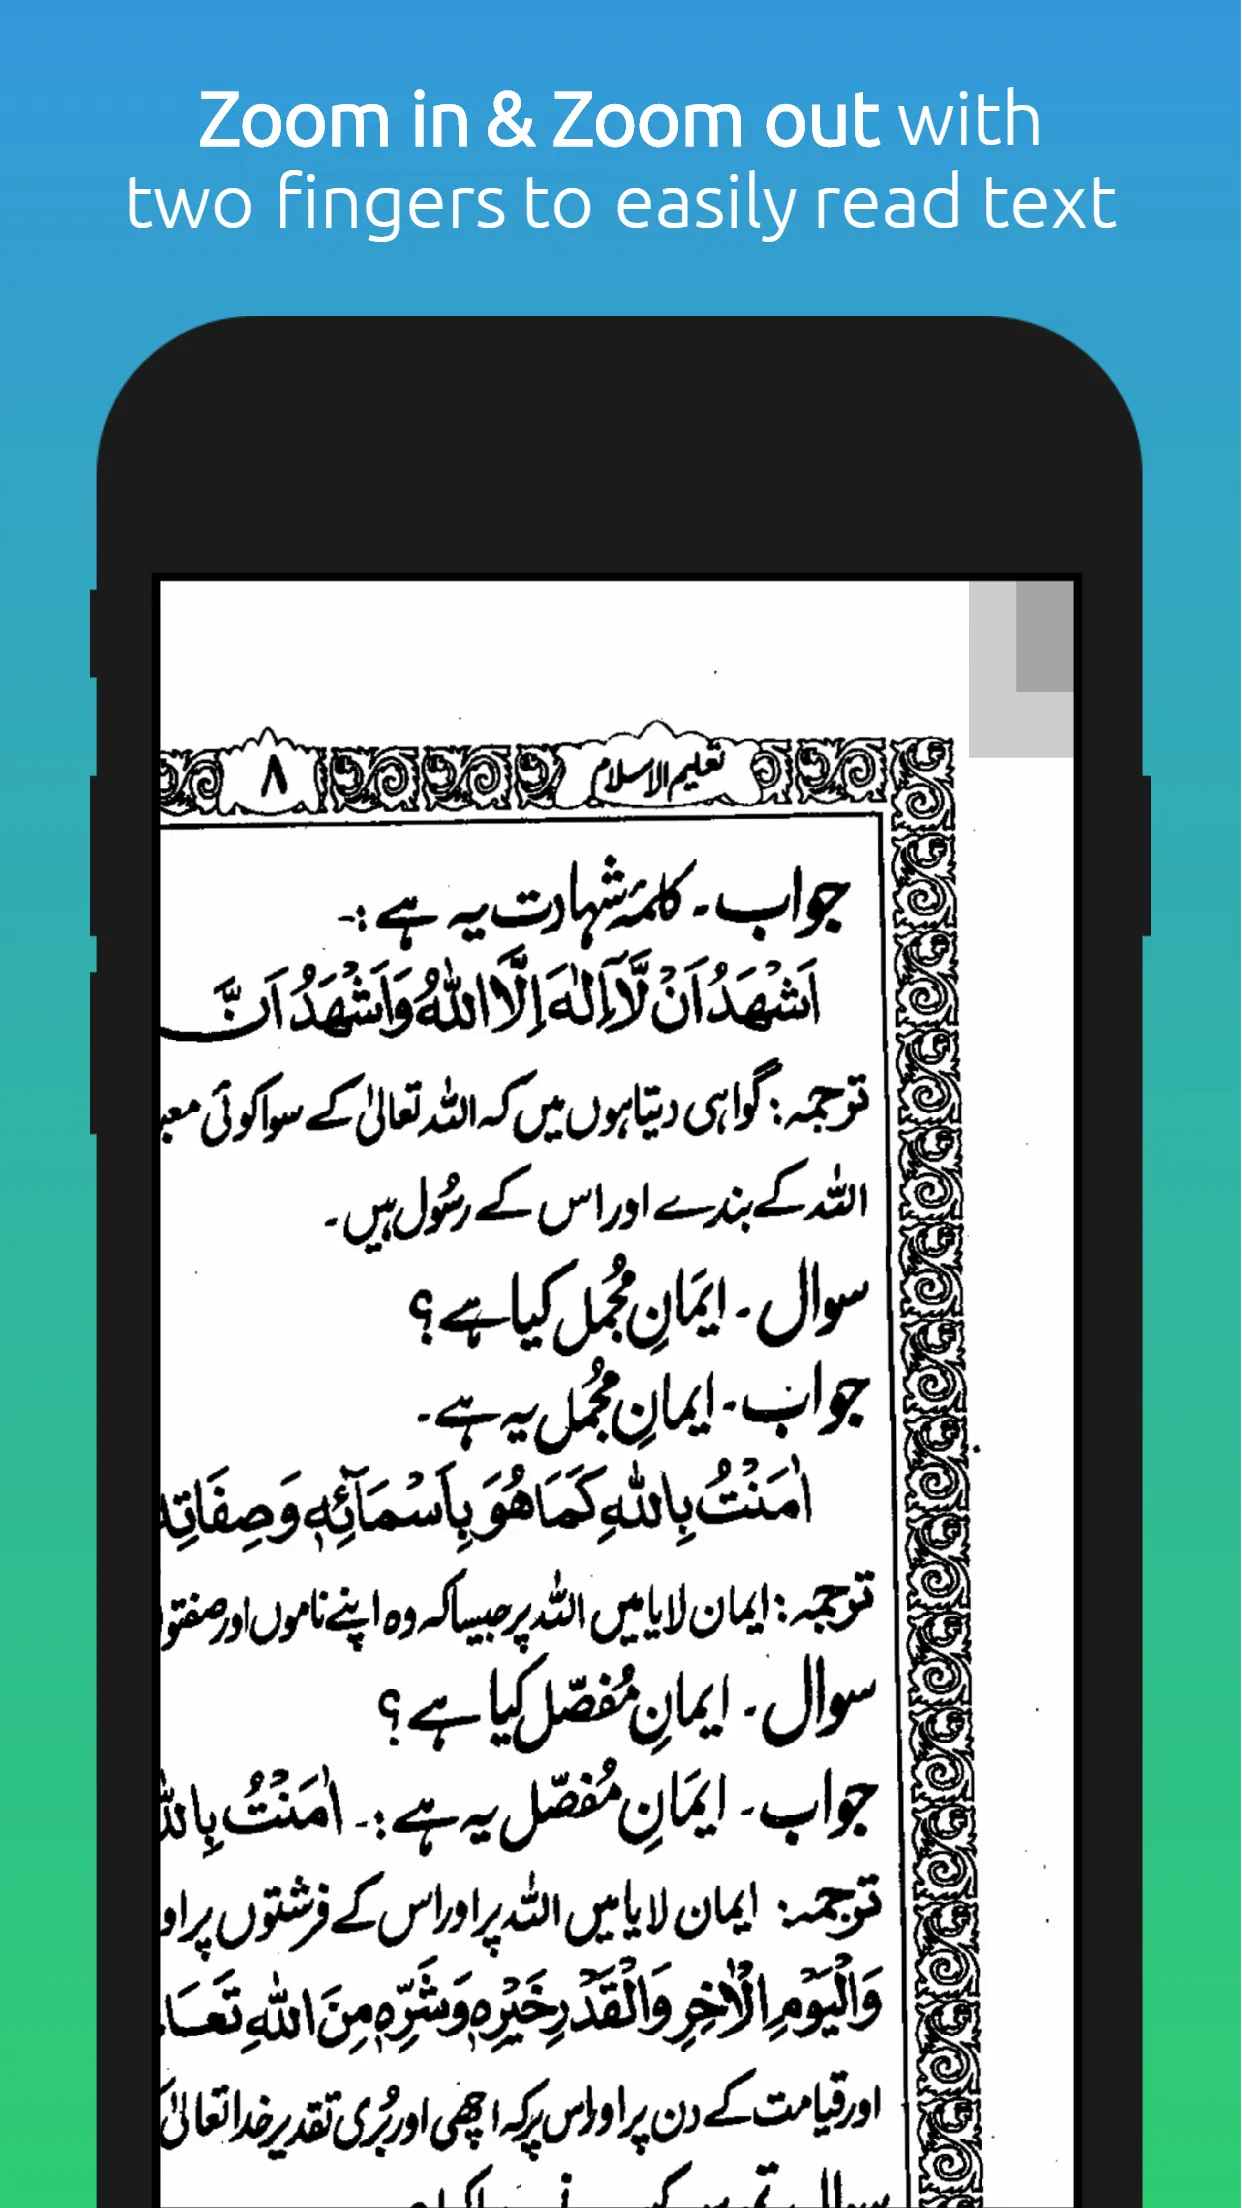 Zoom in & Zoom out with
two fingers to easily read text
تعلیم الاسلام ۸
جواب۔ کلمۂ شہادت یہ ہے :-
اَشْهَدُ اَنْ لَّآ اِلٰهَ اِلَّا اللّٰهُ وَاَشْهَدُ اَنَّ
ترجمہ: گواہی دیتا ہوں میں کہ اللہ تعالیٰ کے سوا کوئی
اللہ کے بندے اور اس کے رسُول ہیں۔
سوال۔ ایمَانِ مُجمل کیا ہے؟
جواب۔ ایمانِ مُجمل یہ ہے۔
اٰمَنْتُ بِاللّٰهِ كَمَا هُوَ بِاَسْمَآئِهٖ وَصِفَاتِهٖ
ترجمہ: ایمان لایا میں اللہ پر جیسا کہ وہ اپنے ناموں اور
سوال۔ ایمانِ مُفصّل کیا ہے؟
جواب۔ ایمَانِ مُفصّل یہ ہے :۔ اٰمَنْتُ
ترجمہ: ایمان لایا میں اللہ پر اور اس کے فرشتوں پر
وَالْيَوْمِ الْاٰخِرِ وَالْقَدْرِ خَيْرِهٖ وَشَرِّهٖ مِنَ اللّٰهِ
اور قیامت کے دن پر اور اس پر کہ اچھی اور بُری تقدیر خدا تعالیٰ